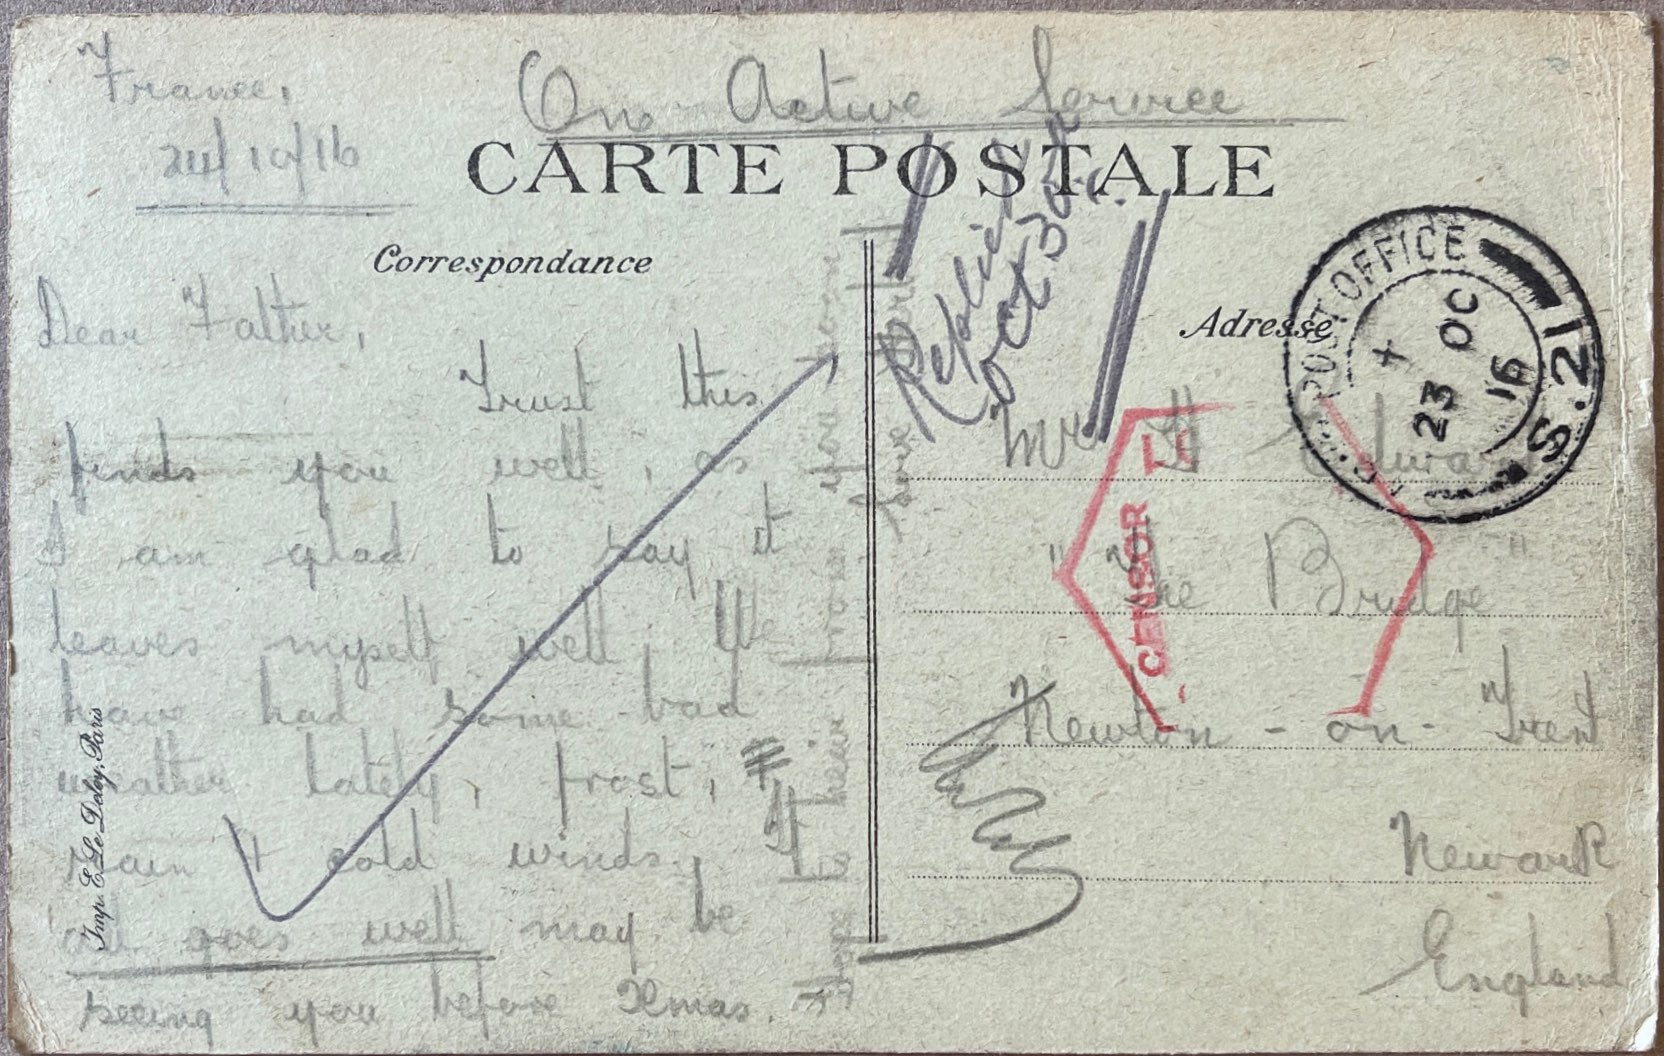 France,
24/10/16
On Active Service
CARTE POSTALE
Correspondance
Dear Father,
Trust this
finds you well, as
I am glad to say it
leaves myself well. We
have had some bad
weather lately, frost,
rain & cold winds. If
all goes well may be
seeing you before Xmas.
Hope to hear from you soon
Love
Imp. E. Le Deley, Paris
Replied
Oct 30th
Adresse
Mr H Edward
"The Bridge"
Newton-on-Trent
Newark
England
POST OFFICE
S.21
X
23 OC
16
CENSOR